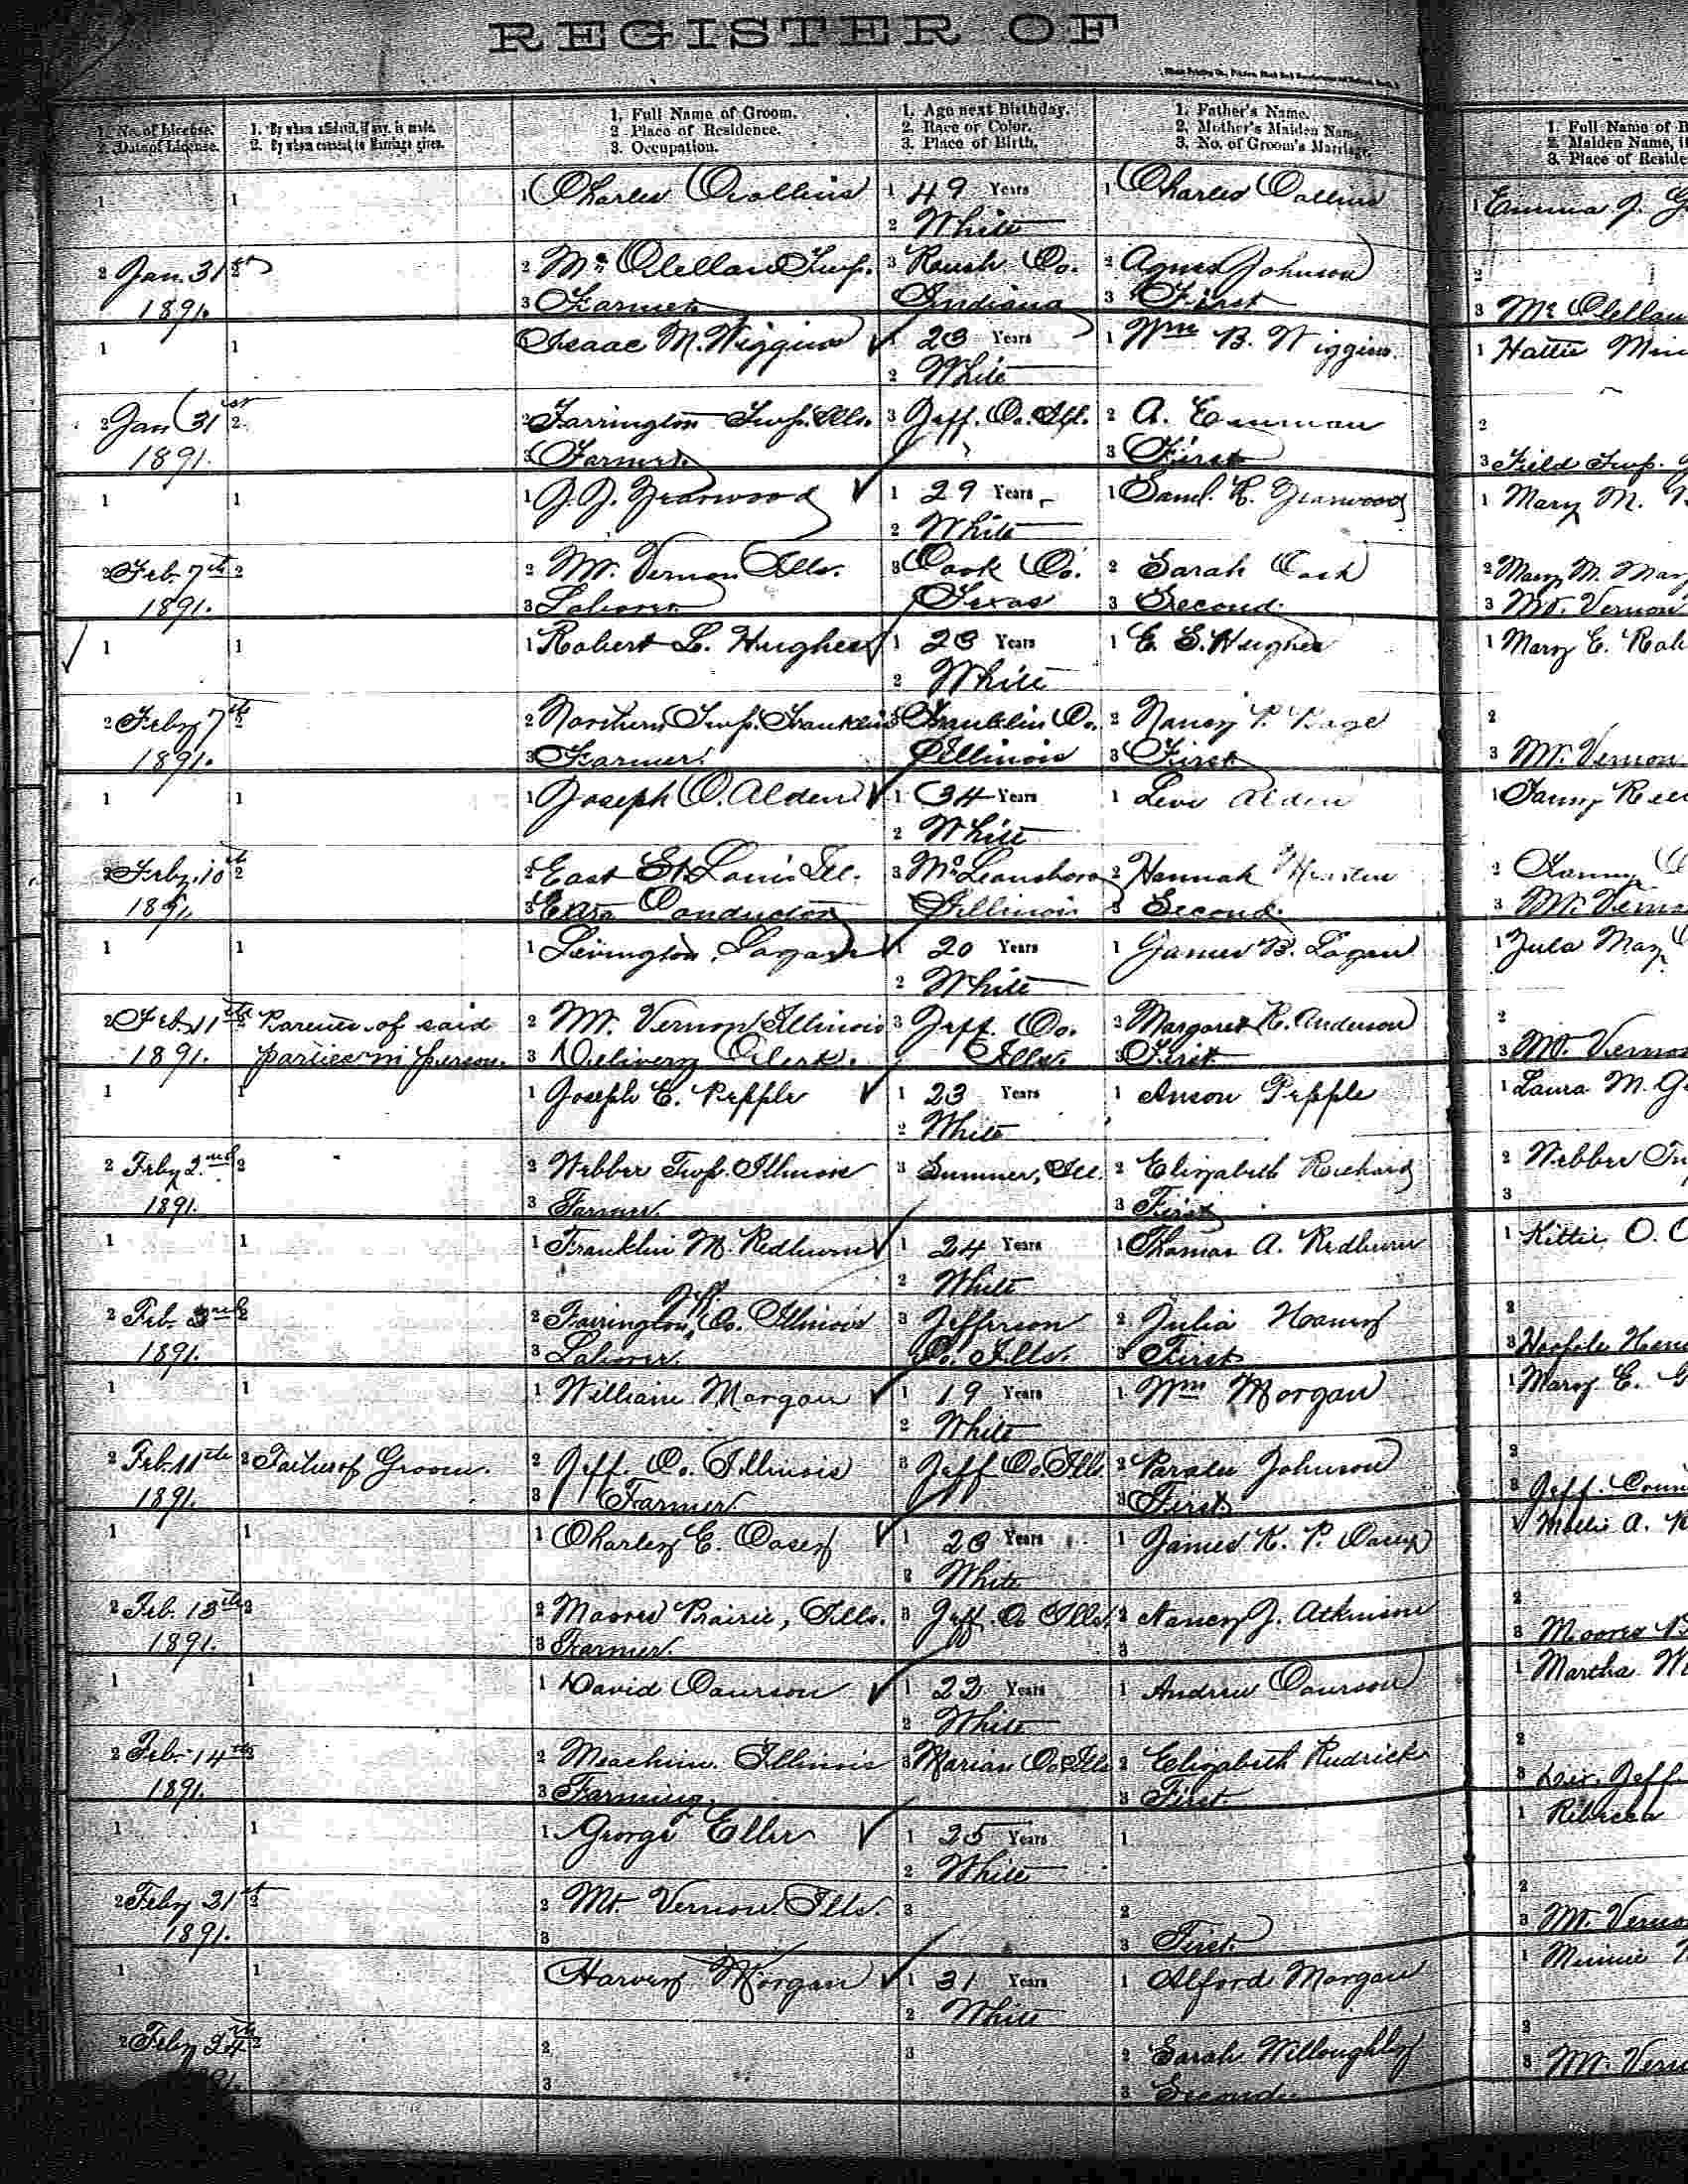 REGISTER OF
1. No. of License.
2. Date of License.
1. By whom affidavit, if any, is made.
2. By whom consent to Marriage given.
1. Full Name of Groom.
2 Place of Residence.
3. Occupation.
1. Age next Birthday.
2. Race or Color.
3. Place of Birth.
1. Father's Name.
2. Mother's Maiden Name.
3. No. of Groom's Marriage.
1. Full Name of B
2. Maiden Name, if
3. Place of Reside
1 1 1 Charles Collins 1 49 Years 1 Charles Collins 1 Emma J. G
2 White
2 Jan. 31st 2 2 Mc Clellan Twp. 3 Rush Co. 2 Agnes Johnson 2
1891. 3 Farmer Indiana 3 First 3 Mc Clellan
1 1 Isaac M. Wiggins 1 23 Years 1 Wm B. Wiggins 1 Hattie Min
2 White
2 Jan 31st 2 2 Farrington Twp. Ills. 3 Jeff. Co. Ill. 2 A. 2
1891. 3 Farmer 3 First 3 Field Twp.
1 1 1 J. J. Yearwood 1 29 Years 1 Saml. E. Yearwood 1 Mary M.
2 White
2 Feb. 7th 2 2 Mt. Vernon Ills. 3 Cook Co. 2 Sarah Cash 2 Mary M. May
1891. 3 Laborer Texas 3 Second 3 Mt. Vernon
1 1 1 Robert L. Hughes 1 23 Years 1 E. S. Hughes 1 Mary E. Rob
2 White
2 Feby 7th 2 2 Northern Twp. Franklin 3 Franklin Co. 2 Nancy P. Page 2
1891. 3 Farmer Illinois 3 First 3 Mt. Vernon
1 1 1 Joseph O. Alden 1 34 Years 1 Levi Alden 1 Fanny Ree
2 White
2 Feby. 10th 2 2 East St. Louis Ill. 3 McLeansboro 2 Hannah 2 Fanny
1891 3 Conductor Illinois 3 Second 3 Mt. Verno
1 1 1 Livington Logan 1 20 Years 1 James B. Logan 1 Zula May
2 White
2 Feb. 11th 2 Parents of said 2 Mt. Vernon Illinois 3 Jeff. Co. 2 Margaret E. Anderson 2
1891. parties in person. 3 Delivery Clerk. Ills. 3 First 3 Mt. Vernon
1 1 1 Joseph E. Pepple 1 23 Years 1 Anson Pepple 1 Laura M. G
2 White
2 Feby 2nd 2 2 Webber Twp. Illinois 3 Sumner, Ill. 2 Elizabeth Richard 2 Webber Tw
1891. 3 Farmer 3 First 3
1 1 1 Franklin M. Redburn 1 24 Years 1 Thomas A. Redburn 1 Kittie O. C
2 White
Jeff
2 Feb. 3rd 2 2 Farrington, Co. Illinois 3 Jefferson 2 Julia Haney 2
1891. 3 Laborer. Co. Ills. 3 First 3
1 1 1 William Morgan 1 19 Years 1 Wm Morgan 1 Mary E. G
2 White
2 Feb. 11th 2 Father of Groom. 2 Jeff. Co. Illinois 3 Jeff Co. Ills. 2 Paralee Johnson 2
1891. 3 Farmer 3 First 3 Jeff. Coun
1 1 1 Charley E. Casey 1 23 Years 1 James K. P. Casey 1 Mollie A. R
2 White
2 Feb. 13th 2 2 Moores Prairie, Ills. 3 Jeff. Co Ills. 2 Nancy J. Atkinson 2
1891. 3 Farmer. 3 3 Moores P
1 1 1 David Courson 1 22 Years 1 Andrew Courson 1 Martha M
2 White
2 Feb. 14th 2 2 Meachum. Illinois 3 Marion Co Ills 2 Elizabeth Rudrick 2
1891. 3 Farming. 3 First 3 Dix, Jeff.
1 1 1 George Eller 1 25 Years 1 1 Rebecca
2 White
2 Feby 21st 2 2 Mt. Vernon Ills. 3 2 2
1891. 3 3 First. 3 Mt. Verno
1 1 Harvey Morgan 1 31 Years 1 Alford Morgan 1 Minnie
2 White
2 Feby 24th 2 2 3 2 Sarah Willoughby 2
91. 3 3 Second 3 Mt. Vern